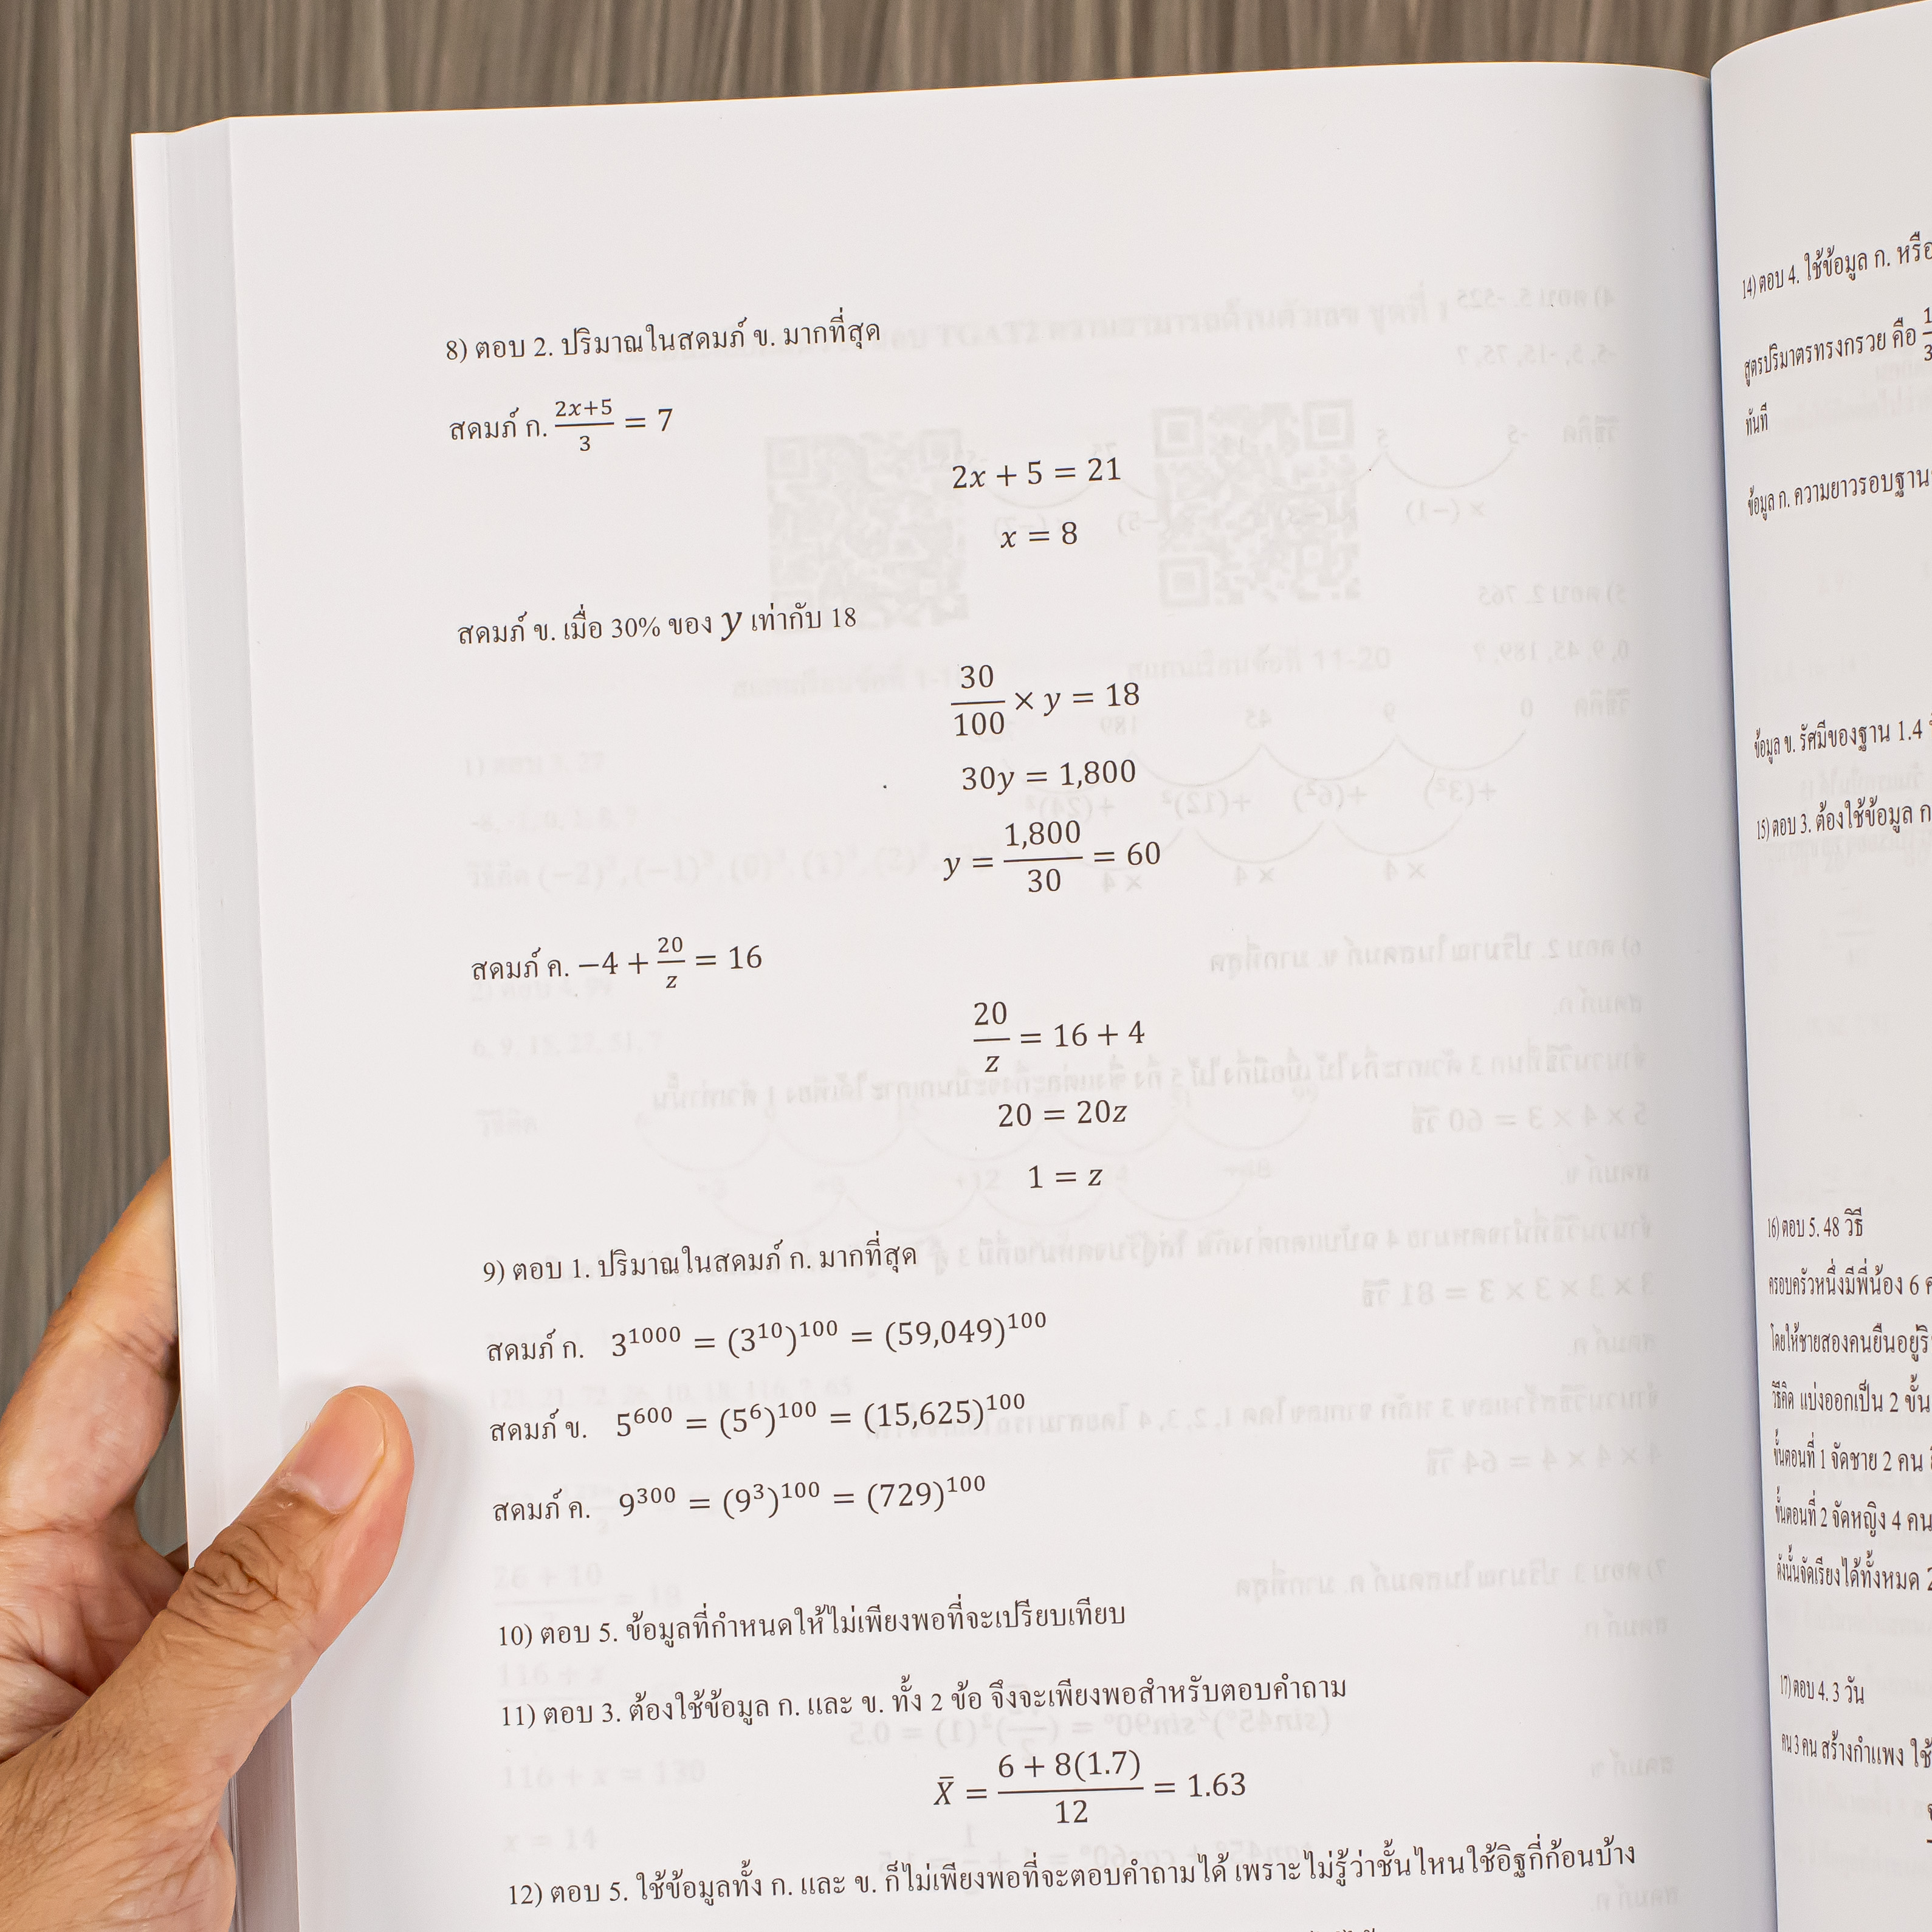 8) ตอบ 2. ปริมาณในสดมภ์ ข. มากที่สุด
สดมภ์ ก. \frac{2x+5}{3} = 7
2x + 5 = 21
x = 8
สดมภ์ ข. เมื่อ 30% ของ y เท่ากับ 18
\frac{30}{100} × y = 18
30y = 1,800
y = \frac{1,800}{30} = 60
สดมภ์ ค. −4 + \frac{20}{z} = 16
\frac{20}{z} = 16 + 4
20 = 20z
1 = z
9) ตอบ 1. ปริมาณในสดมภ์ ก. มากที่สุด
สดมภ์ ก. 3^{1000} = (3^{10})^{100} = (59,049)^{100}
สดมภ์ ข. 5^{600} = (5^{6})^{100} = (15,625)^{100}
สดมภ์ ค. 9^{300} = (9^{3})^{100} = (729)^{100}
10) ตอบ 5. ข้อมูลที่กำหนดให้ไม่เพียงพอที่จะเปรียบเทียบ
11) ตอบ 3. ต้องใช้ข้อมูล ก. และ ข. ทั้ง 2 ข้อ จึงจะเพียงพอสำหรับตอบคำถาม
X̄ = \frac{6 + 8(1.7)}{12} = 1.63
12) ตอบ 5. ใช้ข้อมูลทั้ง ก. และ ข. ก็ไม่เพียงพอที่จะตอบคำถามได้ เพราะไม่รู้ว่าชั้นไหนใช้อิฐกี่ก้อนบ้าง
14) ตอบ 4. ใช้ข้อมูล ก. หรือ
สูตรปริมาตรทรงกรวย คือ \frac{1}{3}
ทันที
ข้อมูล ก. ความยาวรอบฐาน
ข้อมูล ข. รัศมีของฐาน 1.4
15) ตอบ 3. ต้องใช้ข้อมูล ก
16) ตอบ 5. 48 วิธี
ครอบครัวหนึ่งมีพี่น้อง 6
โดยให้ชายสองคนยืนอยู่ริ
วิธีคิด แบ่งออกเป็น 2 ขั้น
ขั้นตอนที่ 1 จัดชาย 2 คน
ขั้นตอนที่ 2 จัดหญิง 4 คน
ดังนั้นจัดเรียงได้ทั้งหมด 2
17) ตอบ 4. 3 วัน
คน 3 คน สร้างกำแพง ใช้